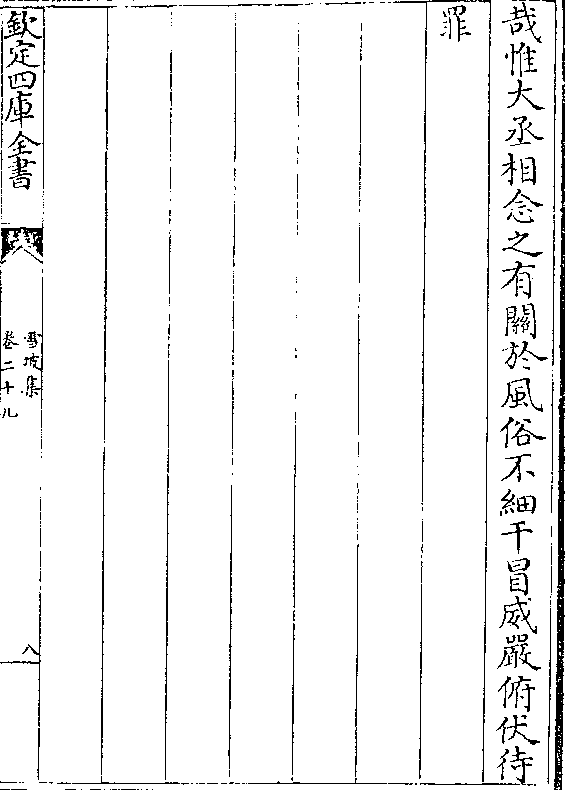 哉惟大丞相念之有關於風俗不細干冒威嚴俯伏待
罪
欽定四庫全書
雪坡集
卷二十九
八